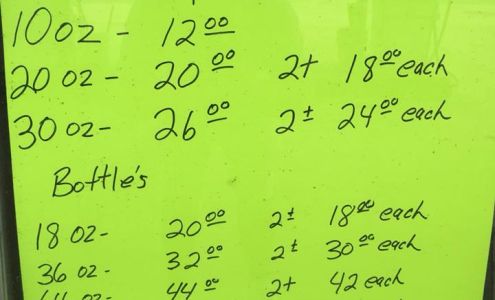 10 oz - 12 00
20 oz - 20 00 2+ 18 00 each
30 oz - 26 00 2± 24 00 each
Bottle's
18 oz - 20 00 2± 18 00 each
36 oz - 32 00 2± 30 00 each
oz - 44 00 2+ 42 each